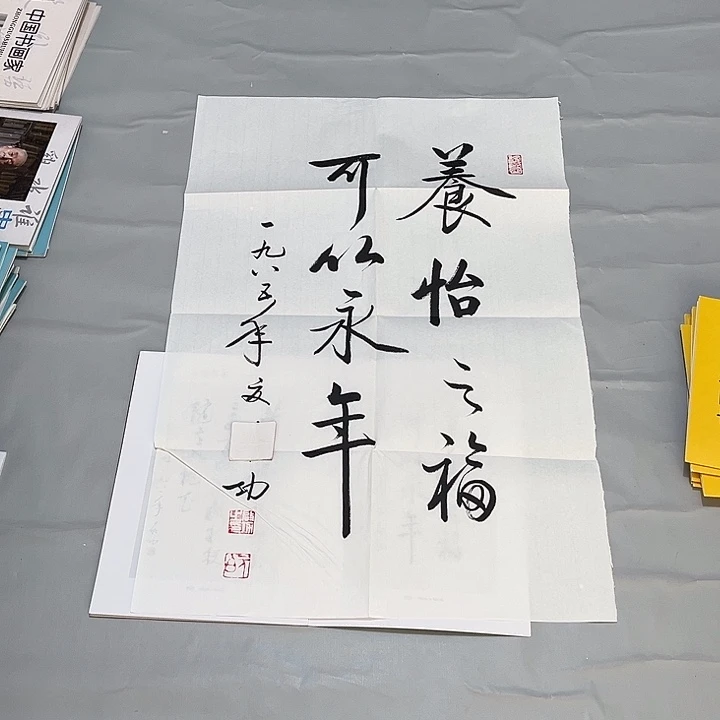 養怡之福
可以永年
一九八五年夏
功
中国书画家